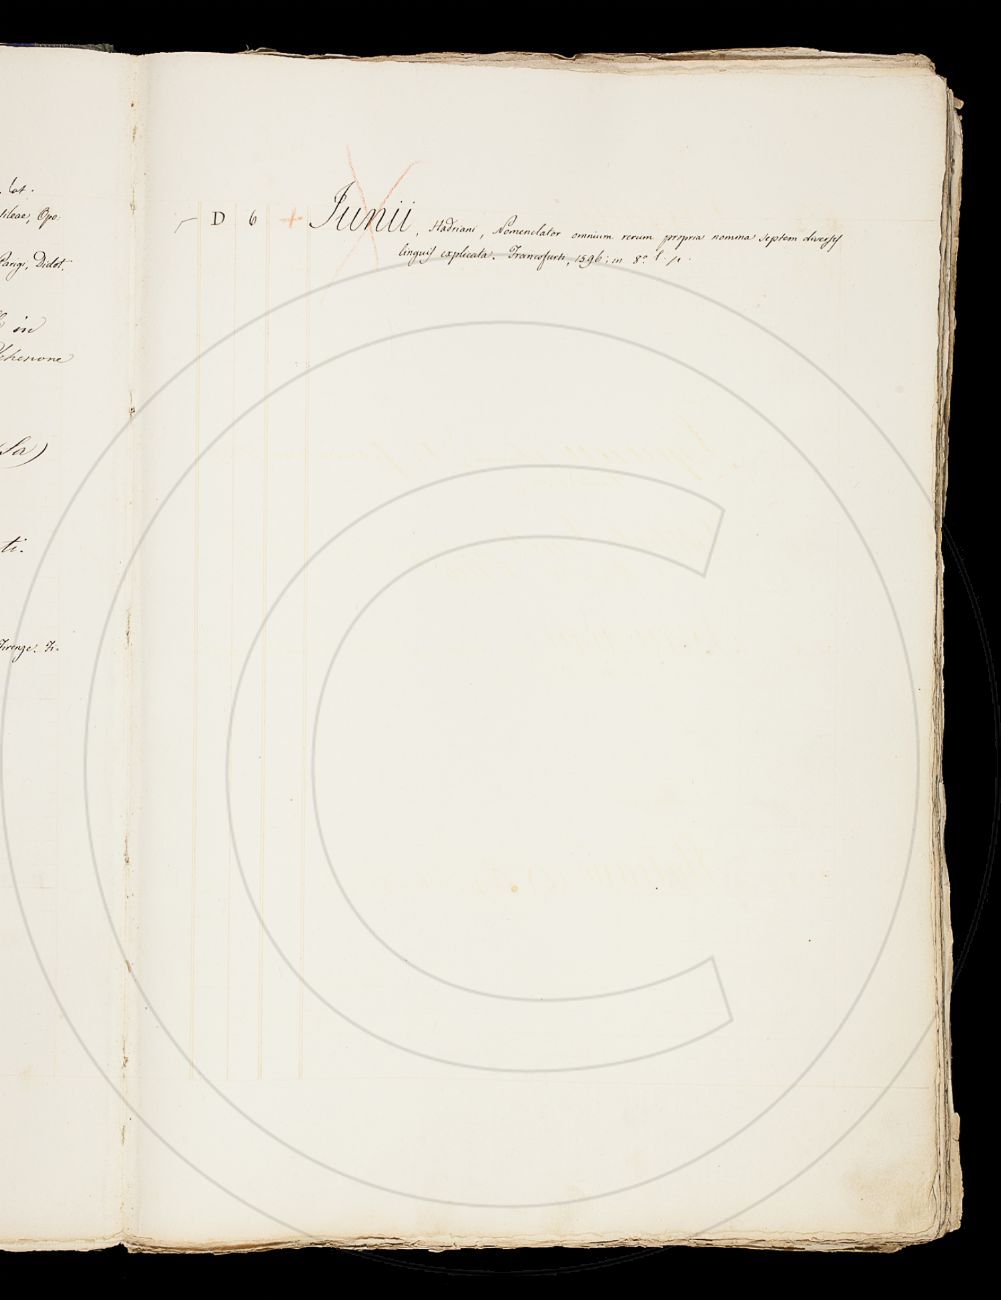 lat.
sileae, Opo:
Parigi, Didot.
in
Tehenone
(Sa)
ti.
Firenze. Fi-
D 6 + Junii, Hadriani, Nomenclator omnium rerum propria nomina septem diversis
linguis explicata. Francofurti, 1596; in 8.° l. p.